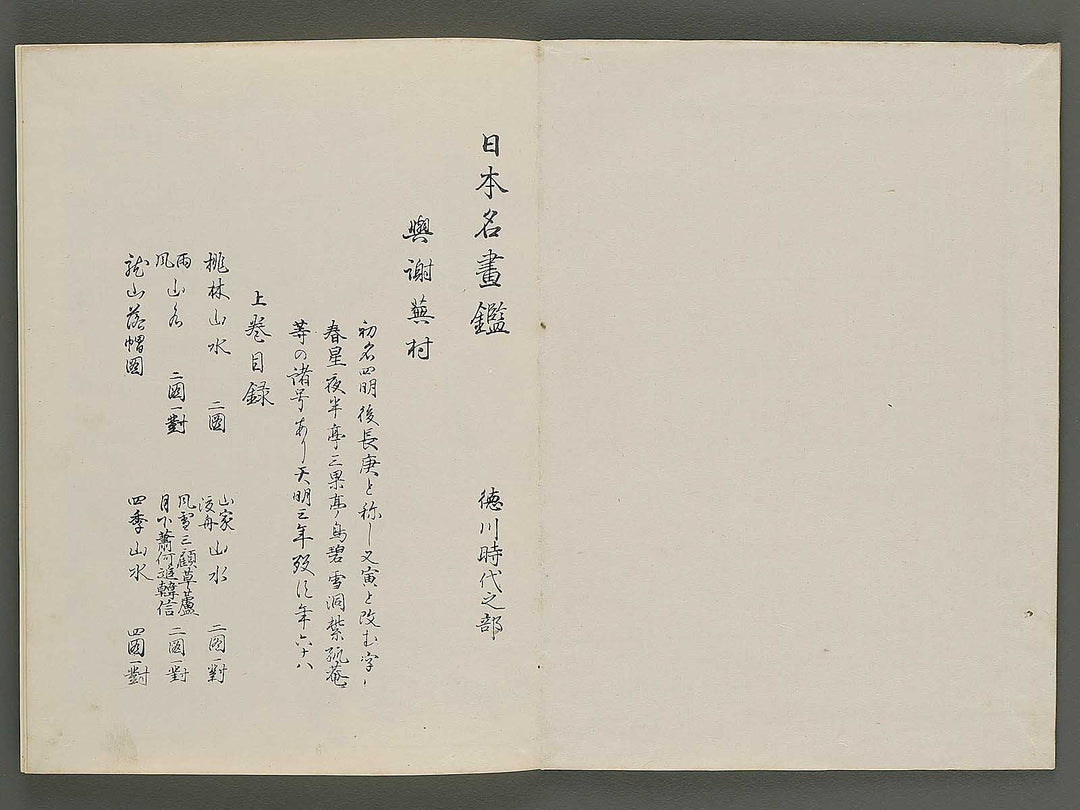 日本名畫鑑　徳川時代之部
與謝蕪村
初名四明後長庚と称し又寅と改む字ハ
春星夜半亭三果亭 碧雲洞紫狐菴
等の諸号あり天明三年歿行年六十八
上巻目録
桃林山水　二圖
雨風山水　二圖一對
龍山落帽圖
山家渡舟山水　二圖一對
風雪三顧草蘆
月下蕭何追韓信　二圖一對
四季山水　四圖一對